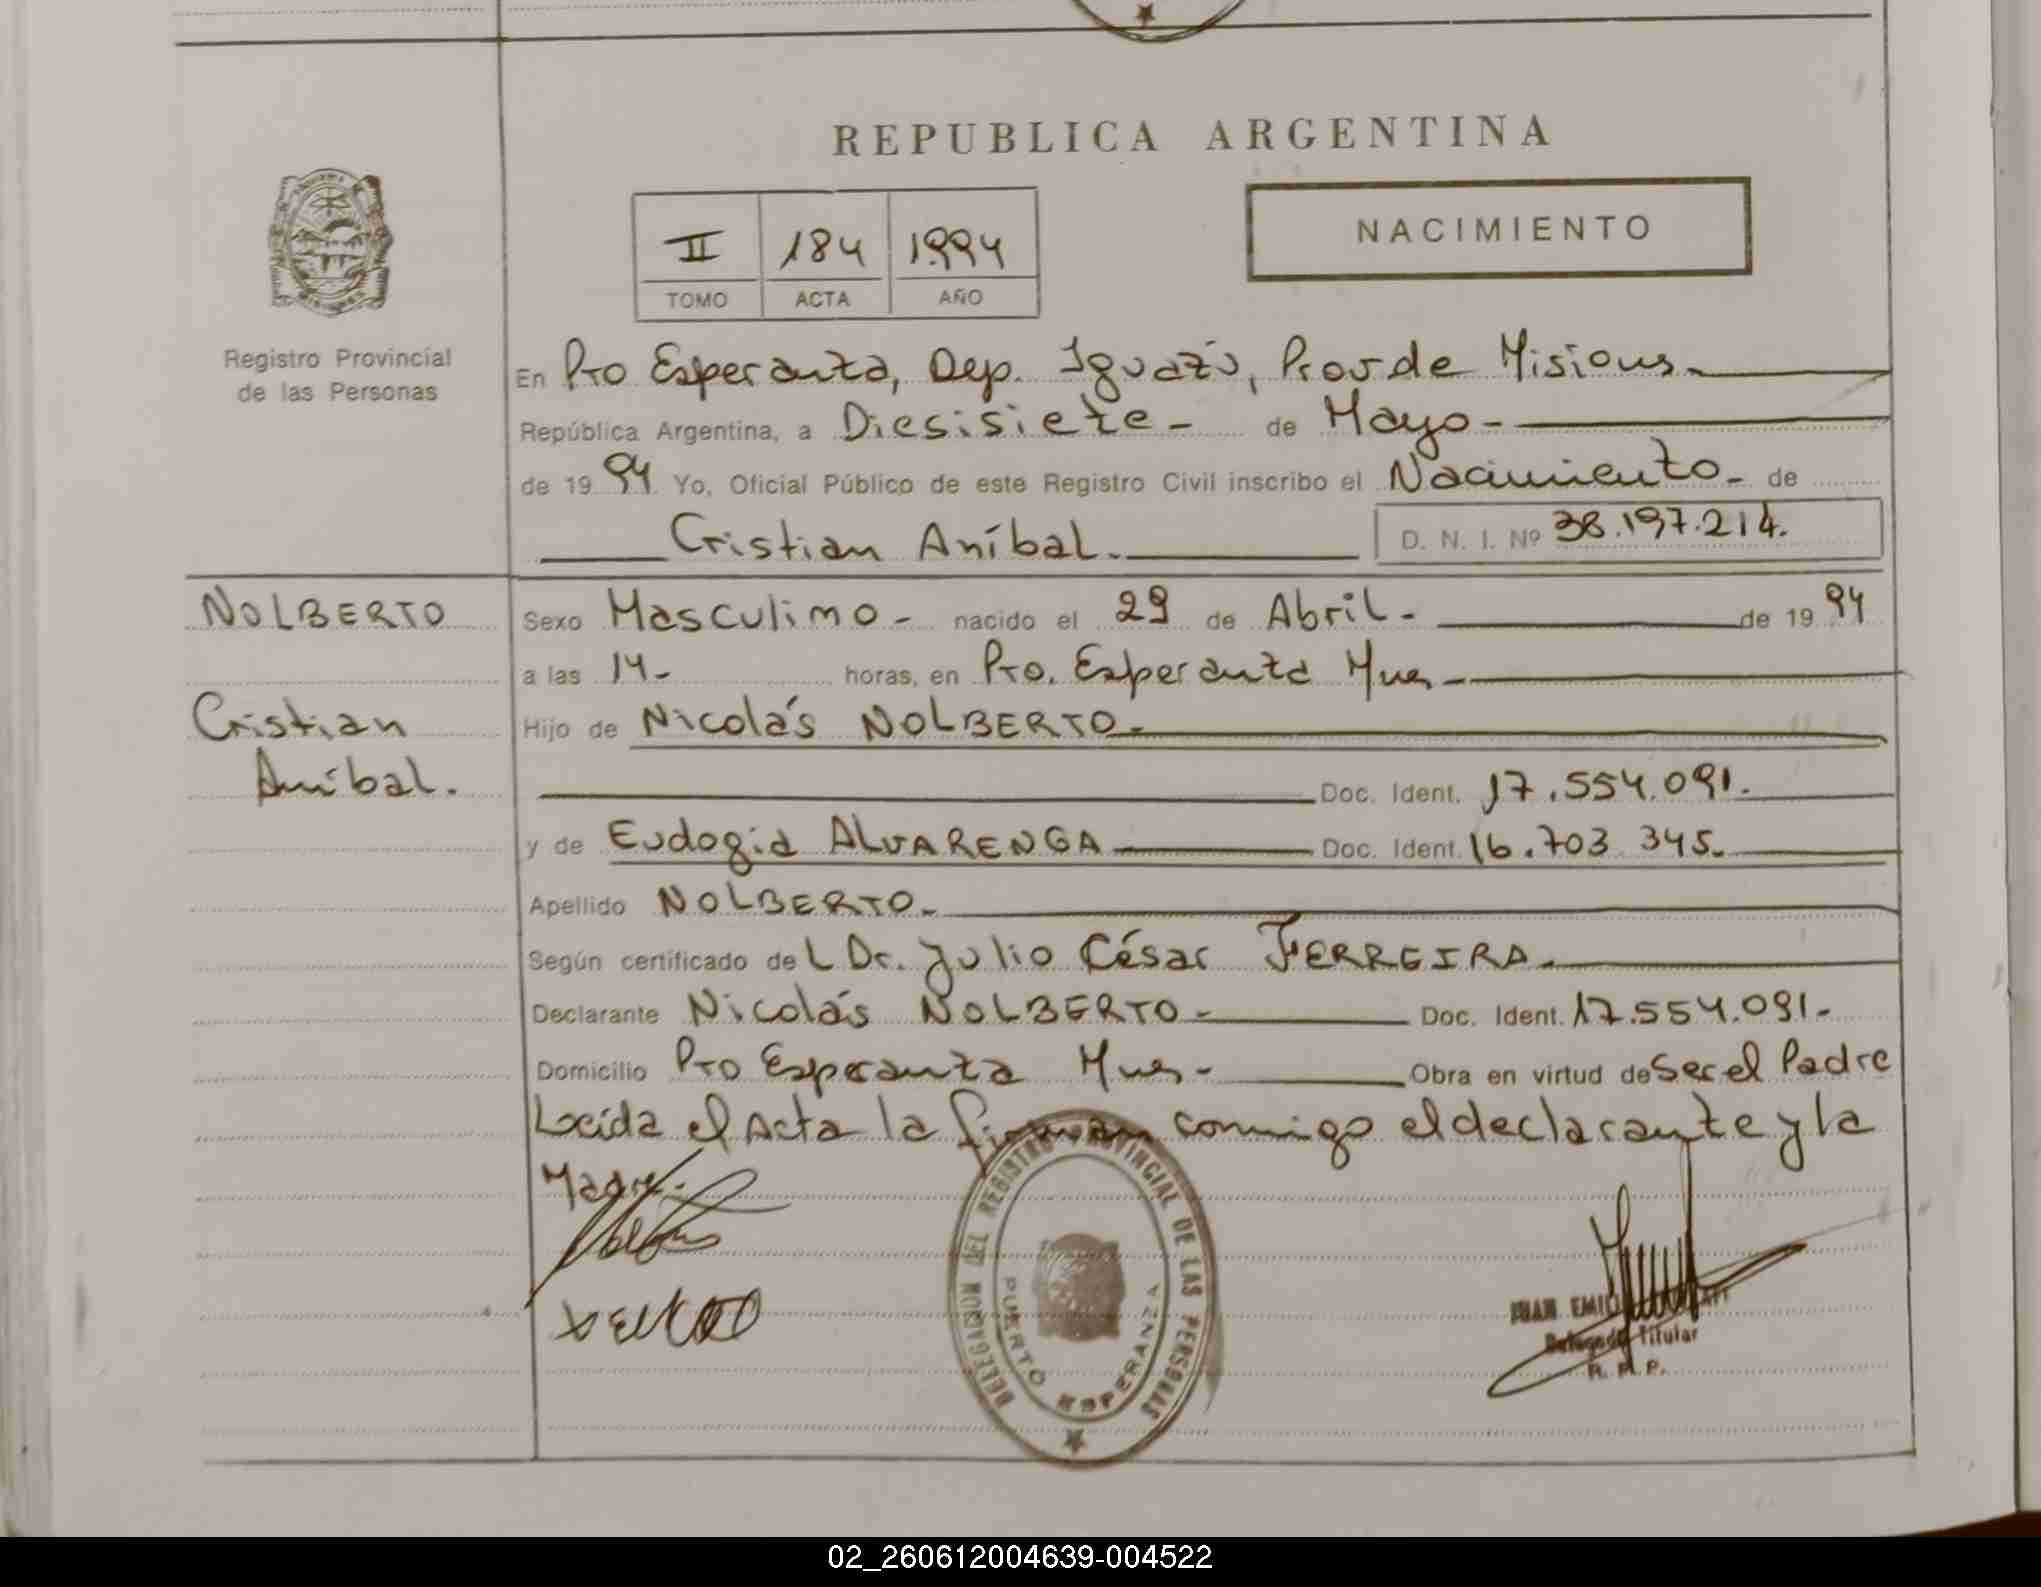 REPUBLICA ARGENTINA
II 184 1994
TOMO ACTA AÑO
NACIMIENTO
Registro Provincial
de las Personas
En Pto Esperanza, Dep. Iguazú, Prov de Misiones.
República Argentina, a Diesisiete - de Mayo -
de 1994 Yo, Oficial Público de este Registro Civil inscribo el Nacimiento - de
Cristian Aníbal. D. N. I. Nº 38.197.214.
NOLBERTO
Cristian
Aníbal.
Sexo Masculino - nacido el 29 de Abril - de 1994
a las 14 - horas, en Pto. Esperanza Mnes -
Hijo de Nicolás NOLBERTO -
Doc. Ident. 17.554.091.
y de Eudogia ALVARENGA Doc. Ident. 16.703.345.
Apellido NOLBERTO -
Según certificado del Dr. Julio César FERREIRA.
Declarante Nicolás NOLBERTO - Doc. Ident. 17.554.091.-
Domicilio Pto Esperanza Mnes - Obra en virtud de Ser el Padre
Leída el Acta la firman conmigo el declarante y la
Madre.
DELEGACION DEL REGISTRO PROVINCIAL DE LAS PERSONAS
PUERTO ESPERANZA
JUAN EMILIO
Delegado Titular
R. P. P.
02_260612004639-004522